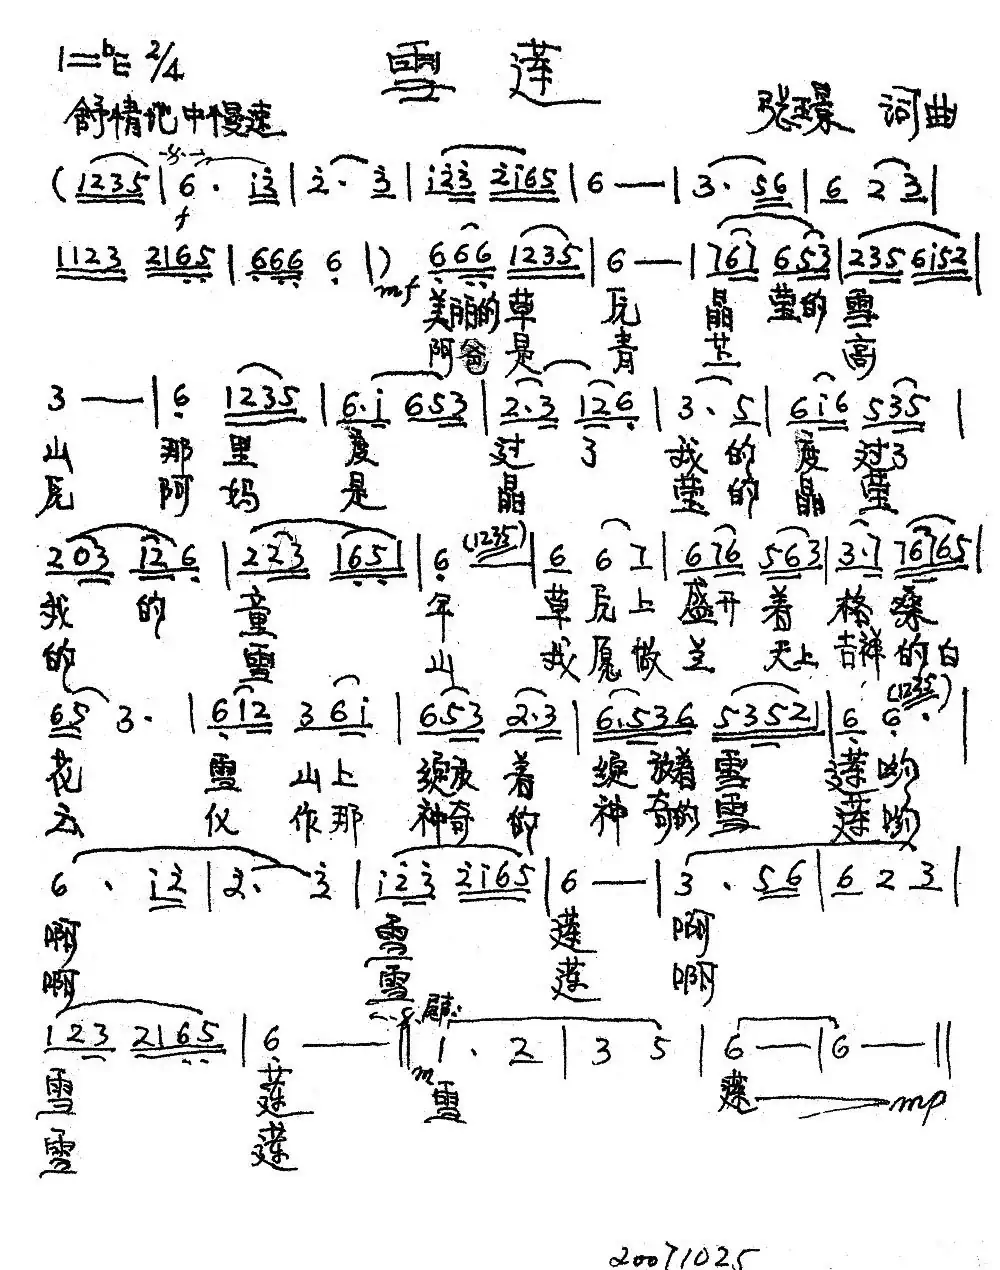 1=ᵇE 2/4 雪 莲
舒情地中慢速 张璟 词曲
(1235|6· i2|2·3|i23 2i65|6—|3·56|6 23|
f
1123 2165|666 6|) 666 1235|6—|767 653|235 6i52|
mf 美丽的草 元 晶 莹的 雪
阿爸是 青 芷 高
3—|6 1235|6·i 653|2·3 126|3·5|6i6 535|
山 那 里 度 过 了 我 的 度 过了
原 阿 妈 是 晶 莹 的 晶 莹
203 126|223 1651|6 (1235)|6 67|676 563|3·7 76765|
我 的 童 年 草 原上 盛开 着 格 桑
的 雪 山 我 愿做 兰 天上 吉祥 的白
65 3·|612 36i|653 2·3|6·536 5352|6 6·(1235)|
花 雪 山上 绽放 着 绽 放着 雪 莲 哟
云 仪 作那 神奇 的 神 奇的 雪 莲 哟
6· i2|2· 3|i23 2i65|6—|3·56|6 23|
啊 雪 莲 啊
啊 雪 莲 啊
123 2165|6—‖1·2|3 5|6—|6—‖
尾声:
雪 莲 m 雪 莲 mp
雪 莲
20071025